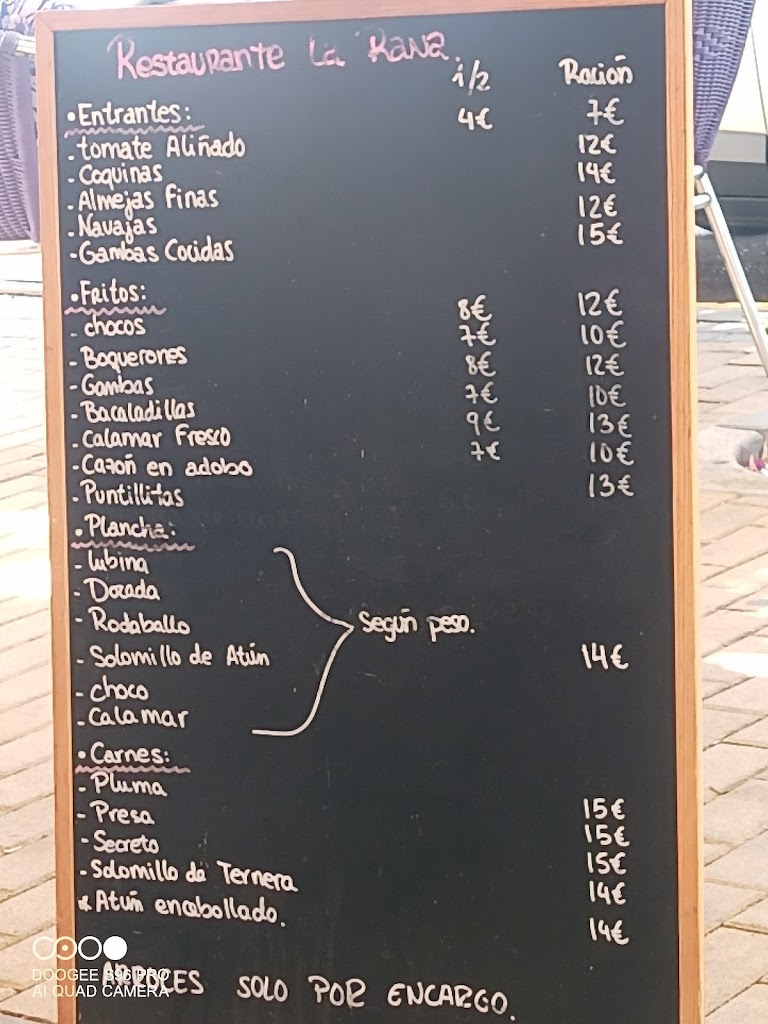 Restaurante La Rana.
1/2 Ración
•Entrantes:
-tomate Aliñado 4€ 7€
-Coquinas 12€
-Almejas Finas 14€
-Navajas 12€
-Gambas Cocidas 15€
•Fritos:
-chocos 8€ 12€
-Boquerones 7€ 10€
-Gambas 8€ 12€
-Bacaladillas 7€ 10€
-Calamar Fresco 9€ 13€
-Cazoñ en adobo 7€ 10€
-Puntillitas 13€
•Plancha:
-lubina
-Dorada
-Rodaballo según peso.
-Solomillo de Atún 14€
-choco
-Calamar
•Carnes:
-Pluma 15€
-Presa 15€
-Secreto 15€
-Solomillo de Ternera 14€
*Atún encebollado. 14€
ARROCES SOLO POR ENCARGO.
DOOGEE S96 PRO
AI QUAD CAMERA